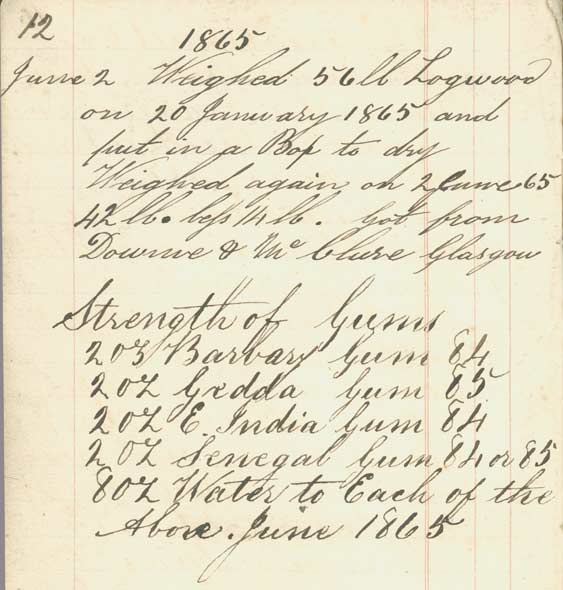 12
1865
June 2 Weighed 56 lb Logwood
on 20 January 1865 and
put in a Box to dry
Weighed again on 2 June 65
42 lb. less 14 lb. Got from
Downie & Mc Clure Glasgow
Strength of Gums
2 oz Barbary Gum 84
2 oz Gedda Gum 85
2 oz E. India Gum 84
2 oz Senegal Gum 84 or 85
8 oz Water to Each of the
Above. June 1865